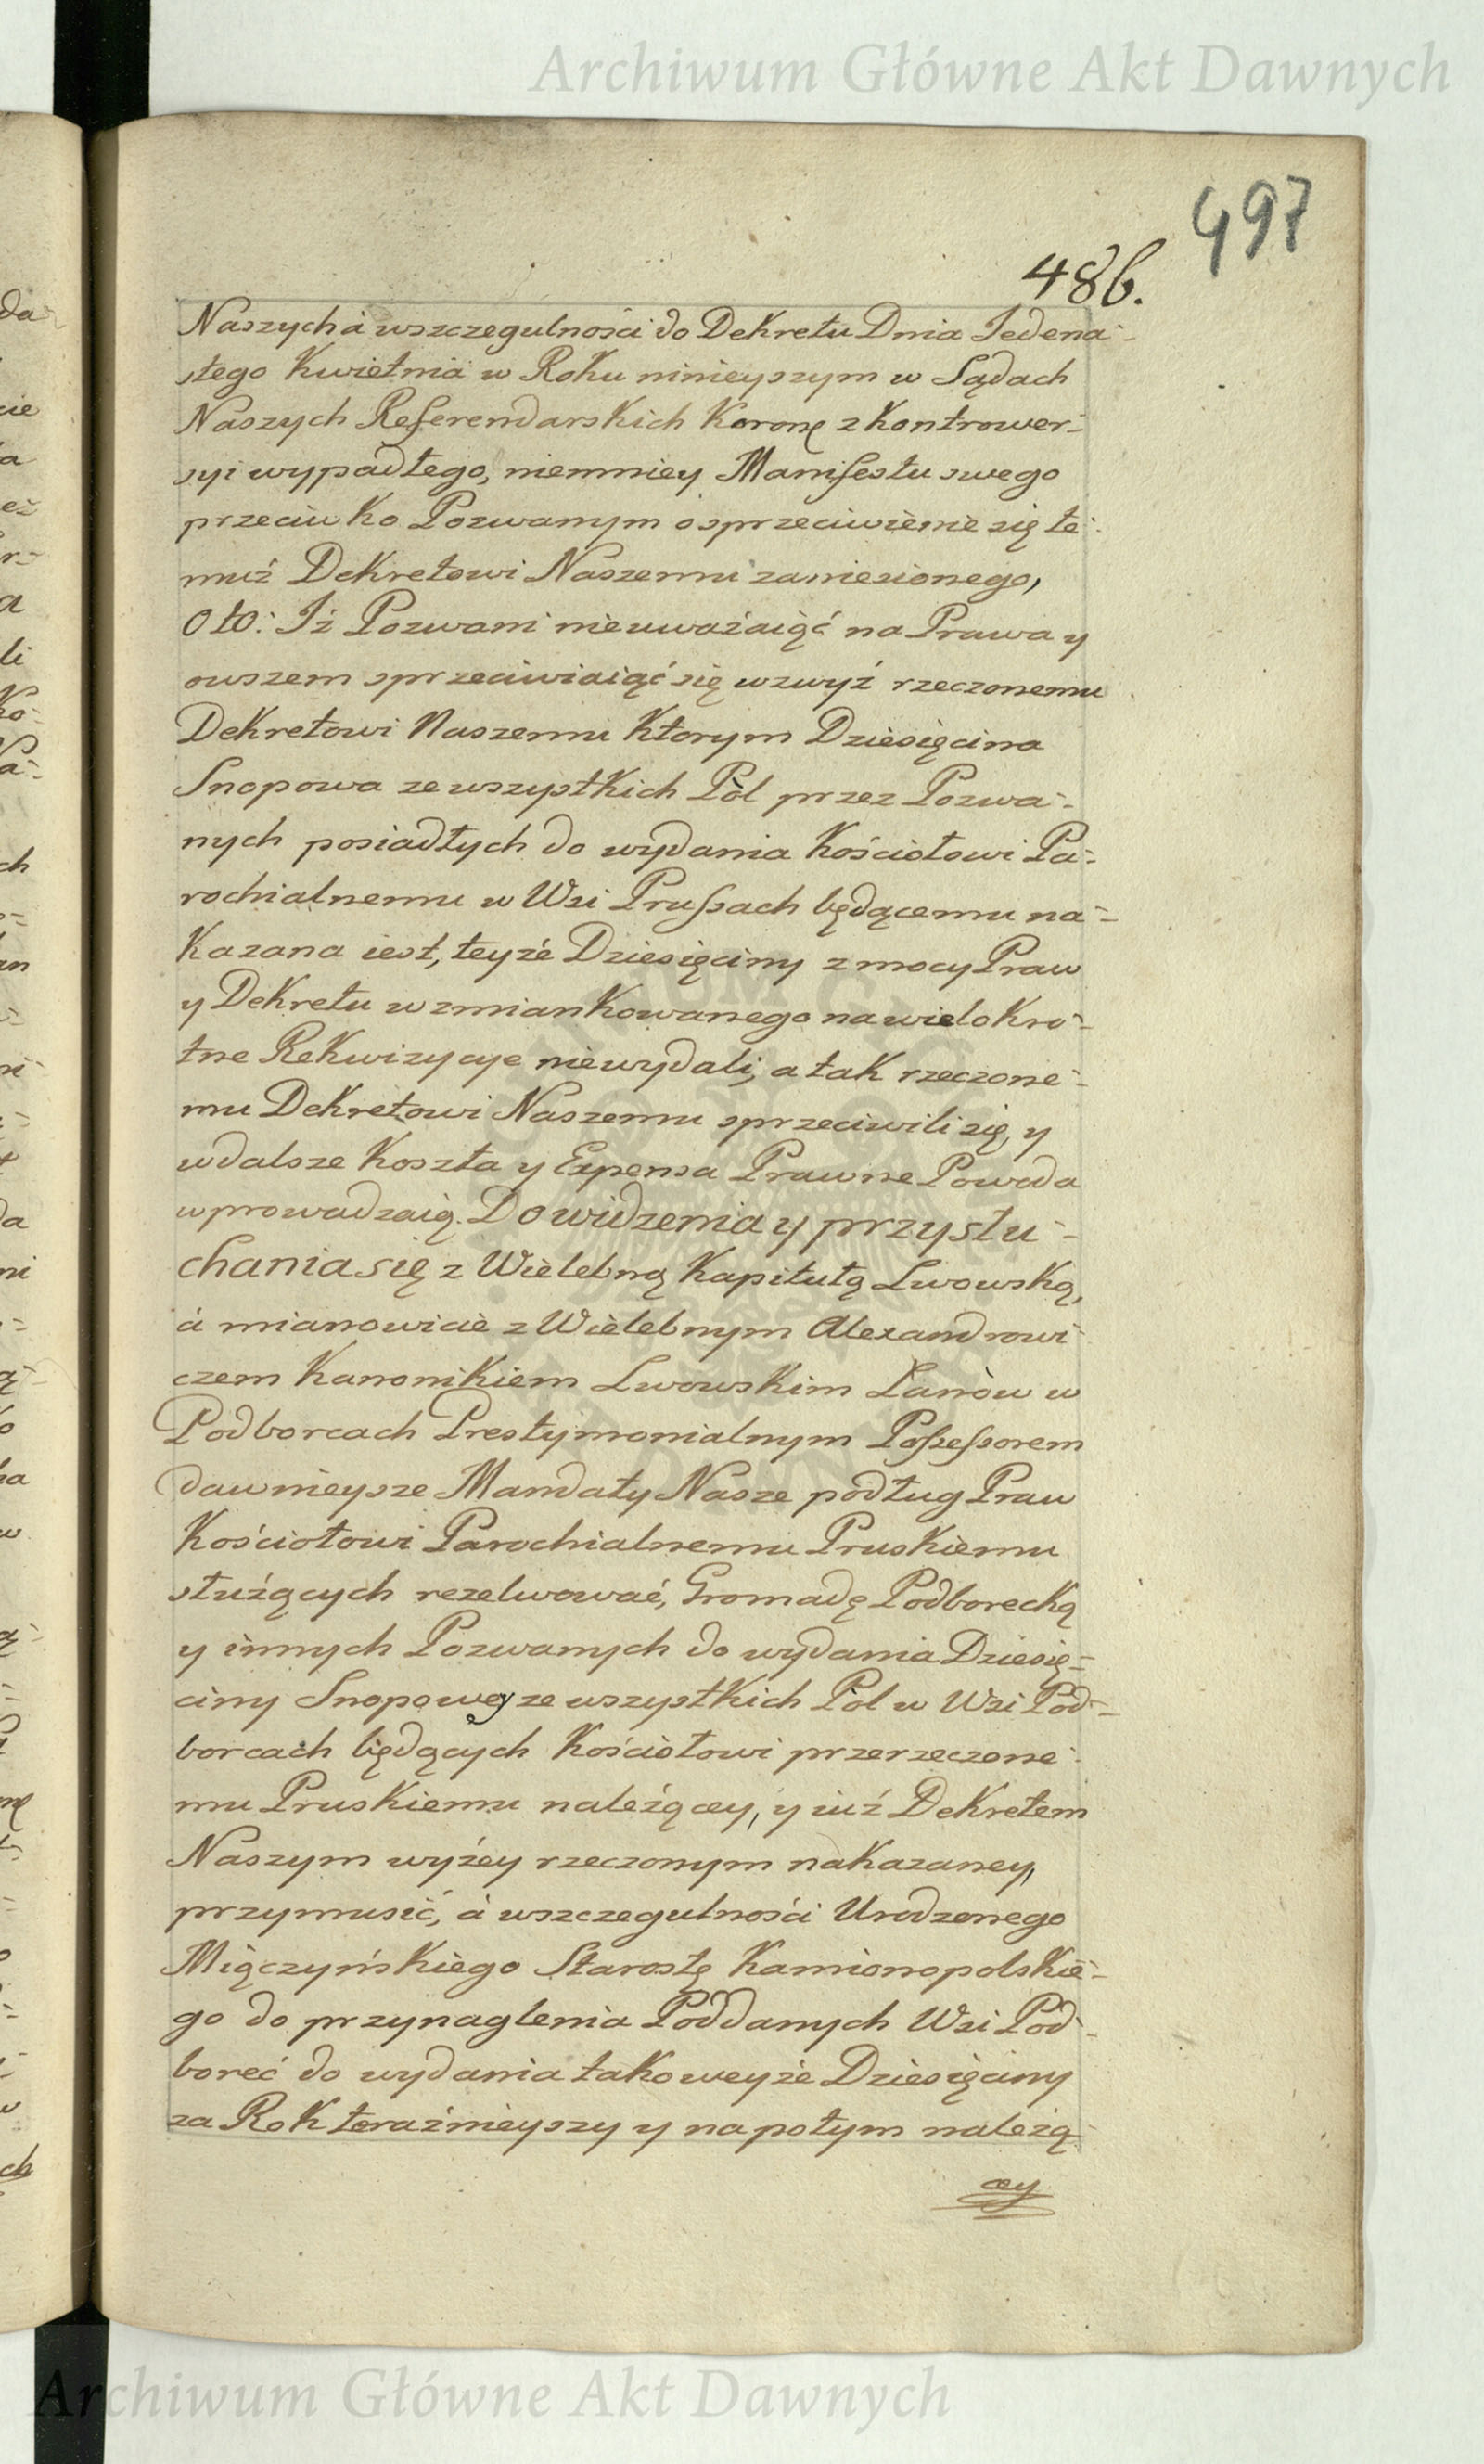 Archiwum Główne Akt Dawnych
497
486.
Naszych á wszczegulności do Dekretu Dnia Jedena-
stego Kwietnia w Roku ninieyszym w Sądach
Naszych Referendarskich Koronę z Kontrower-
syi wypadłego, niemniey Manifestu swego
przeciwko Pozwanym o sprzeciwienie się te-
muż Dekretowi Naszemu zaniesionego,
Oto: Iż Pozwani nieuważaiąć na Prawa y
owszem sprzeciwiaiąć się wzwyż rzeczonemu
Dekretowi Naszemu Ktorym Dziesięcina
Snopowa ze wszystkich Pól przez Pozwa-
nych posiadłych do wydania Kościołowi Pa-
rochialnemu w Wsi Prussach będącemu na-
Kazana iest, teyże Dziesięciny z mocy Praw
y Dekretu wzmiankowanego na wielokro-
tne Rekwizycye niewydali, a tak rzeczone-
mu Dekretowi Naszemu sprzeciwili się, y
w dalsze Koszta y Expensa Prawne Powoda
wprowadzaią. Do widzenia y przysłu-
chania się z Wielebną Kapitułą Lwowską,
á mianowicie z Wielebnym Alexandrowi-
czem Kanonikiem Lwowskim Łanów w
Podborcach Prestymonialnym Possessorem
dawnieysze Mandaty Nasze podług Praw
Kościołowi Parochialnemu Pruskiemu
służących rezelwować, Gromadę Podborecką
y innych Pozwanych do wydania Dziesię-
ciny Snopowey ze wszystkich Pól w Wsi Pod-
borcach będących Kościołowi przerzeczone-
mu Pruskiemu należącey, y iuż Dekretem
Naszym wyżey rzeczonym nakazaney,
przymusić, á wszczegulności Urodzonego
Miączyńskiego Starostę Kamionopolskie-
go do przynaglenia Poddanych Wsi Pod-
boreć do wydania takoweyże Dziesięciny
za Rok teraźnieyszy y na potym należą-
cey
Archiwum Główne Akt Dawnych